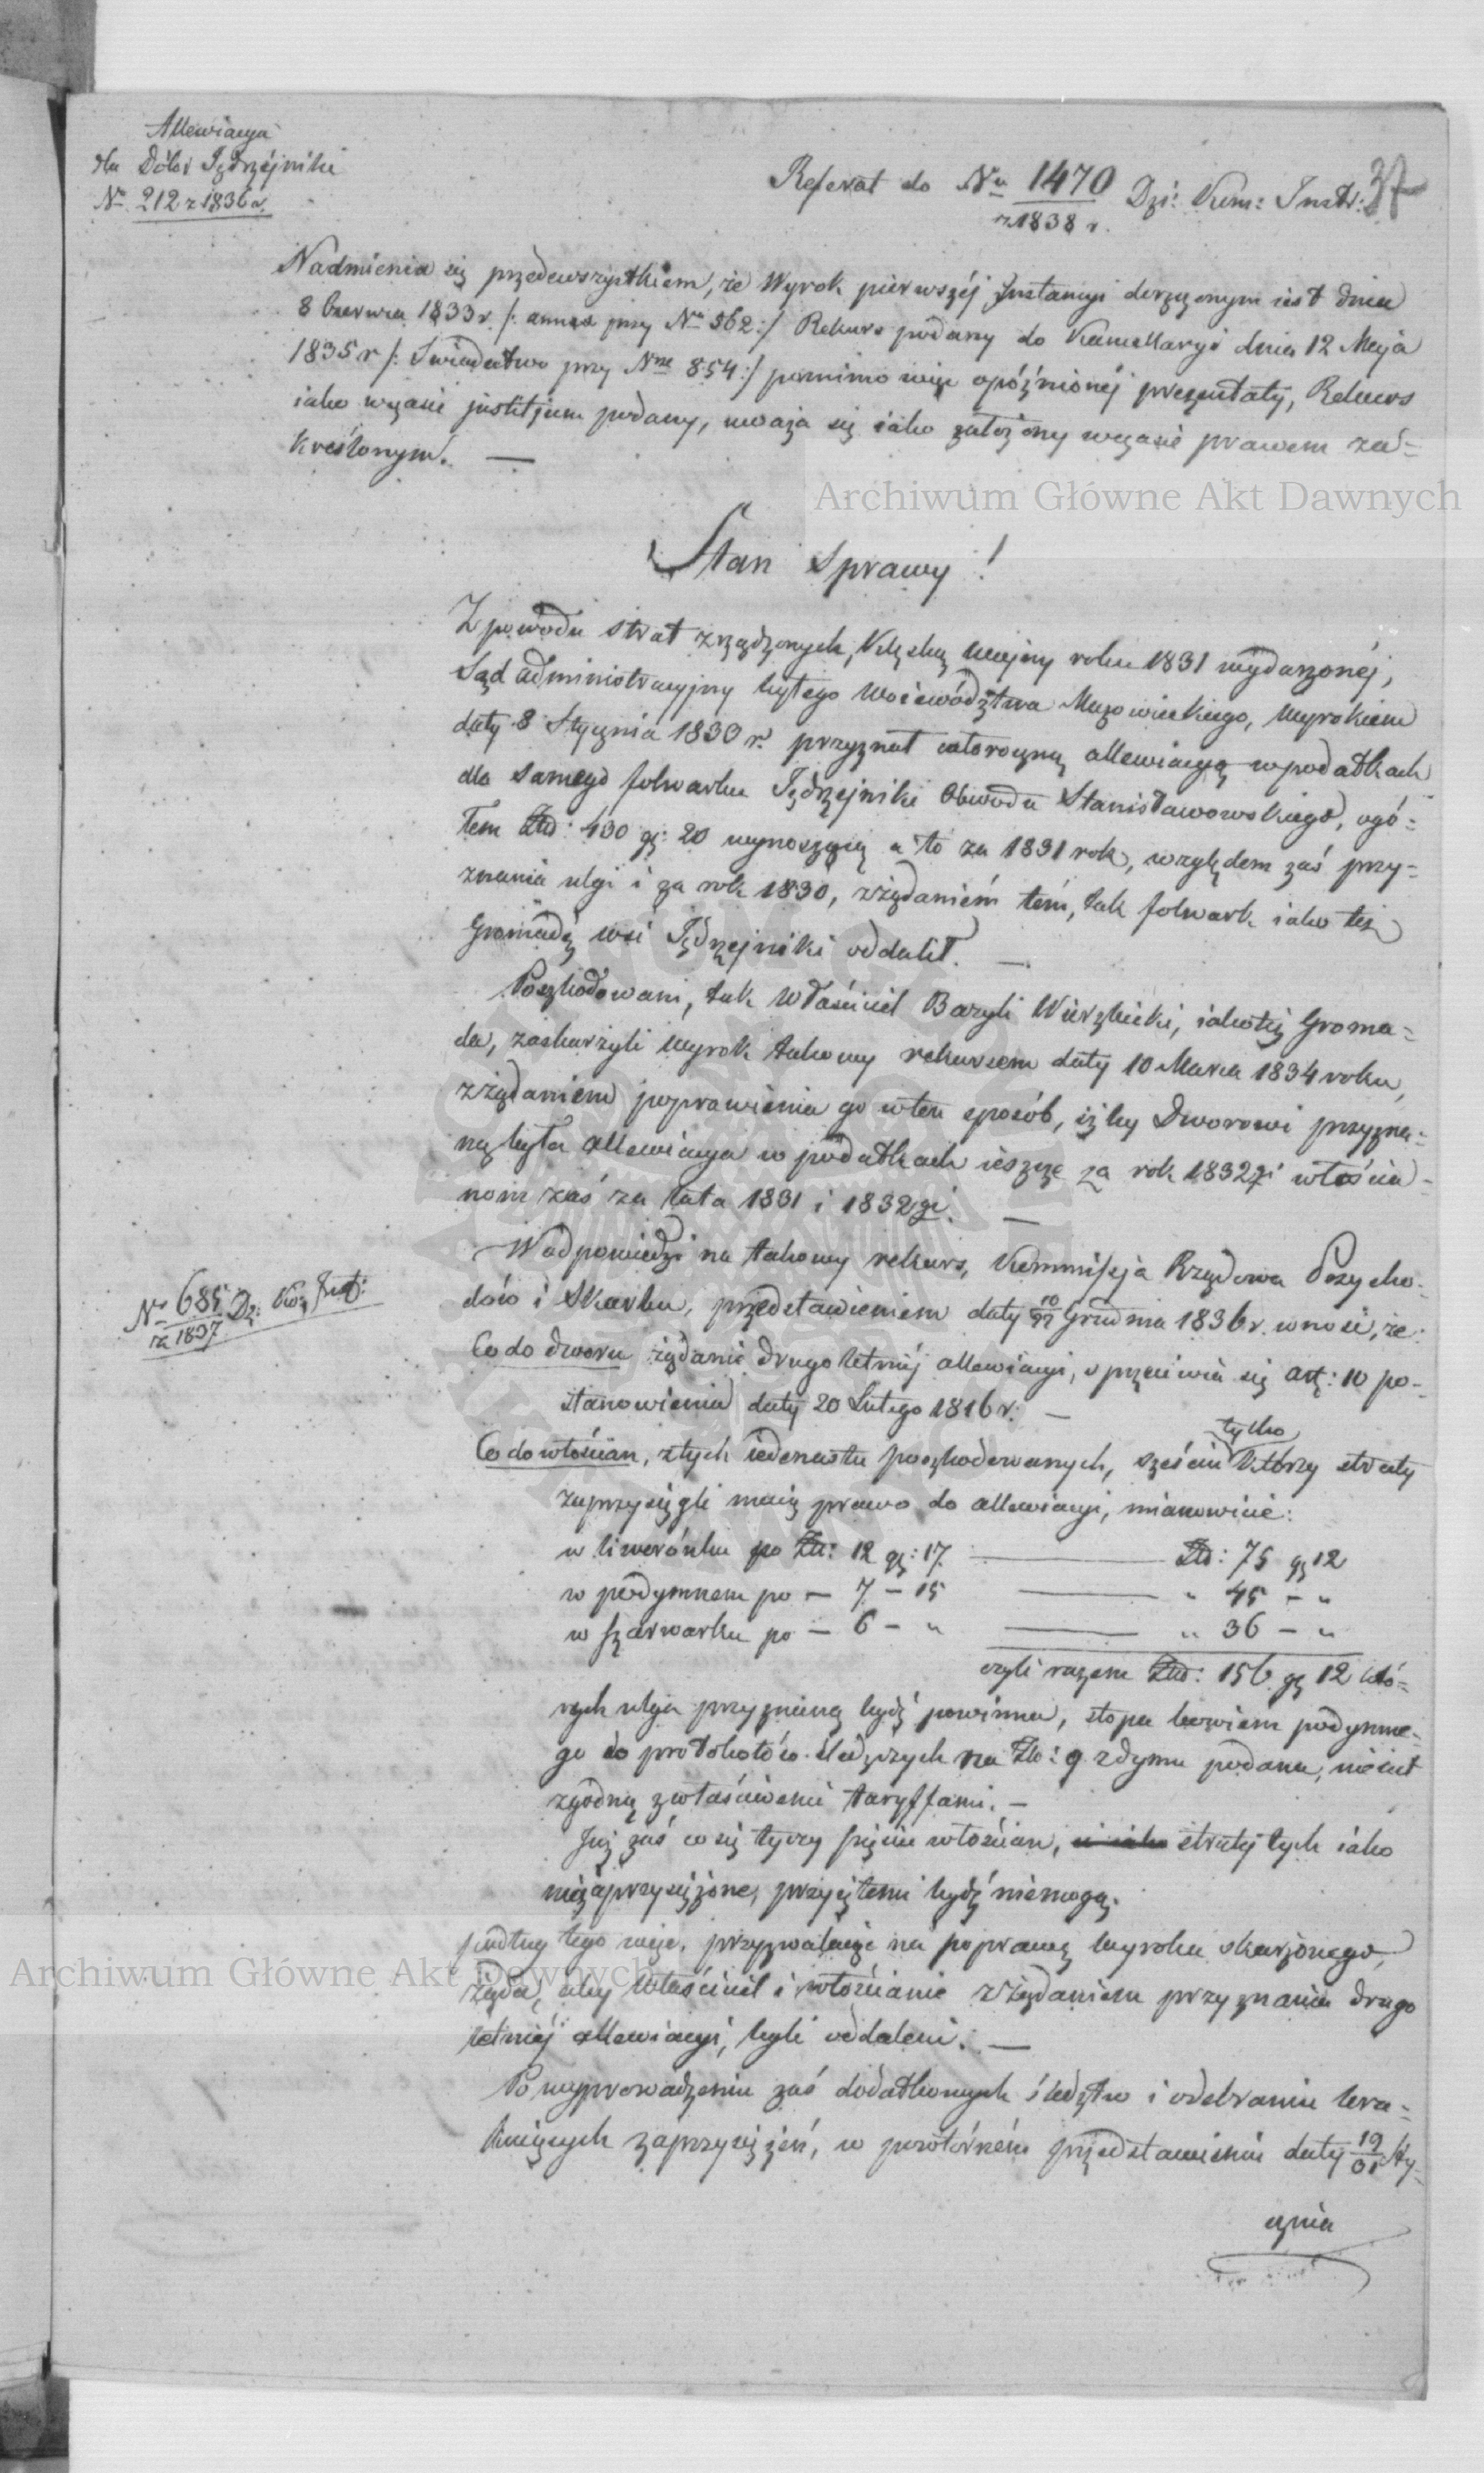 Allewiacya
dla Dóbr Jędrzejniki
Nº 212 z 1836 r.
Referat do Nu 1470 Dzi: Kom: Instr: 37
z 1838 r.
Nadmienia się przedewszystkiem, że Wyrok pierwszéj Instancyi doręczonym iest dnia
8 Czerwca 1833 r. /: annex przy Nrze 862 :/ Rekurs podany do Kancellaryi dnia 12 Maja
1835 r /: Swiadectwo przy Nrze 854 :/ pomimo więc opóźnionéj prezentaty, Rekurs
iako wczasie justitjum podany, uważa się iako założony wczasie prawem za=
kreślonym. —
Archiwum Główne Akt Dawnych
Stan Sprawy!
Z powodu strat zrządzonych, klęską wojny roku 1831 wydarzonéj,
Sąd administracyjny byłego Woiewództwa Mazowieckiego, wyrokiem
daty 8 Stycznia 1833 r. przyznał całoroczną allewiacyą w podatkach
dla samego folwarku Jędrzejniki Obwodu Stanisławowskiego, ogó=
łem Złp: 430 gr: 20 wynoszącą a to za 1831 rok, względem zaś przy=
znania ulgi i za rok 1830, z żądaniem tém, tak folwark iako też
Gromadę wsi Jędrzejniki oddalił. —
Poszkodowani, tak Właściciel Bazyli Wierzbicki, iakotéż Groma=
da, zaskarżyli wyrok takowy rekursem daty 10 Marca 1834 roku,
z żądaniem poprawienia go w ten sposób, iżby Dworowi przyzna=
ną była allewiacya w podatkach ieszcze za rok 1832gi włościa=
nom zaś za lata 1831 i 1832gi. —
W odpowiedzi na takowy rekurs, Kommissya Rządowa Przycho=
dów i Skarbu, przedstawieniem daty 10/22 Grudnia 1836 r. wnosi, że:
Nº 685 Dz: Ko: Inst:
z 1837
Co do dworu żądanie drugoletniéj allewiacyi, sprzeciwia się art: 10 po=
stanowienia daty 20 Lutego 1816 r. —
tylko
Co do włościan, z tych iedenastu poszkodowanych, sześciu którzy straty
zaprzysięgli maią prawo do allewiacyi, mianowicie:
w liwerónku po Złp: 12 gr: 17. ——— Złp: 75 gr 12
w podymnem po — 7 — 15 ——— " 45 — "
w szarwarku po — 6 — " ——— " 36 — "
czyli razem Złp: 156 gr 12 któ=
rych ulga przyznaną bydź powinna, stopa bowiem podymne=
go do protokołów śledczych na Złp: 9 z dymu podana, nie iest
zgodną z właściwemi taryffami. —
Już zaś co się tyczy pięciu włościan, straty tych iako
niezaprzysiężone, przyiętemi bydź niemogą.
podług tego więc, przyzwalaiąc na poprawę wyroku skarżonego,
Archiwum Główne Akt Dawnych
żąda, aby właściciel i włościanie z żądaniem przyznania drugo
letniéj allewiacyi, byli oddaleni. —
Po wyprowadzeniu zaś dodatkowych śledztw i odebraniu bra=
kuiących zaprzysiężeń, w powtórném przedstawieniu daty 19/31 Sty=
cznia